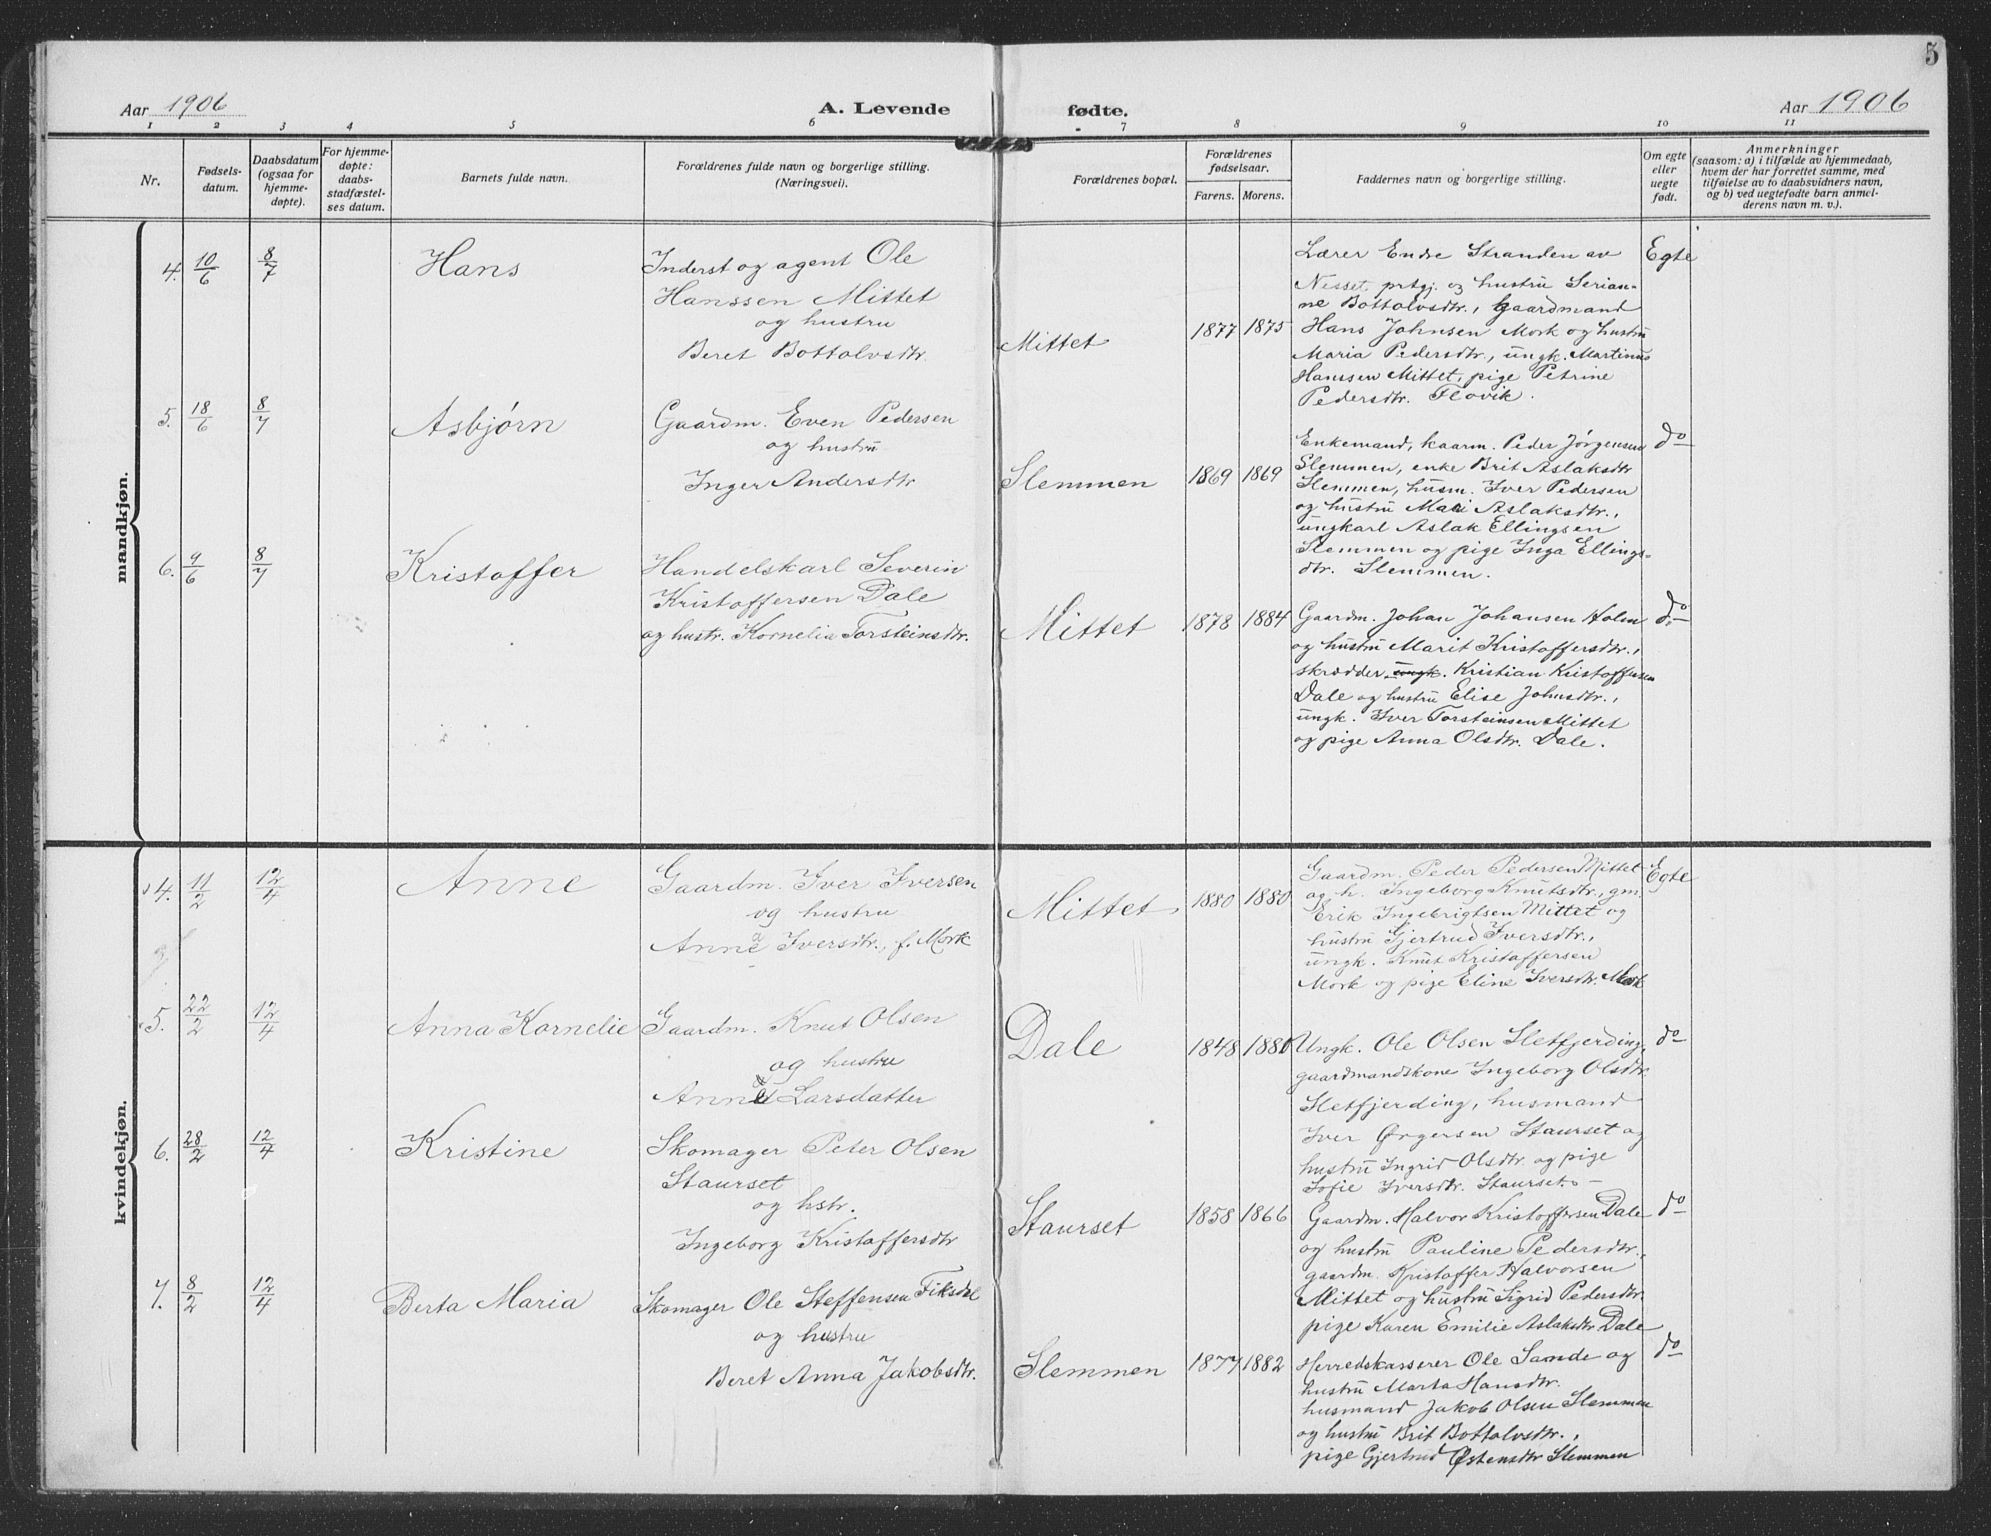 5
Aar 1906
A. Levende fødte.
Aar 1906
1 2 3 4 5 6 7 8 9 10 11
Nr.
Fødsels-
datum.
Daabsdatum
(ogsaa for
hjemme-
døpte).
For hjemme-
døpte:
daabs-
stadfæstel-
ses datum.
Barnets fulde navn.
Forældrenes fulde navn og borgerlige stilling.
(Næringsvei).
Forældrenes bopæl.
Forældrenes
fødselsaar.
Farens. Morens.
Faddernes navn og borgerlige stilling.
Om egte
eller
uegte
født.
Anmerkninger
(saasom: a) i tilfælde av hjemmedaab,
hvem der har forrettet samme, med
tilføielse av to daabsvidners navn,
og b) ved uegtefødte barn anmel-
derens navn m. v.).
mandkjøn.
4. 10/6 8/7 Hans
Inderst og agent Ole
Hanssen Mittet
og hustru
Beret Bottolvsdtr.
Mittet 1877 1875
Lærer Endre Stranden av
Nesset prstgj. og hustru Serian-
ne Bottolvsdtr., gaardmand
Hans Johnsen Mork og hustru
Maria Pedersdtr., ungk. Martinus
Hanssen Mittet, pige Petrine
Pedersdtr. Flovik.
Egte
5. 18/6 8/7 Asbjørn
Gaardm. Even Pedersen
og hustru
Inger Andersdtr
Slemmen 1869 1869
Enkemand, kaarm. Peder Jørgensen
Slemmen, enke Brit Aslaksdtr
Slemmen, husm. Iver Pedersen
og hustru Mari Aslaksdtr.,
ungkarl Aslak Ellingsen
Slemmen og pige Inga Ellings-
dtr. Slemmen.
do
6. 9/6 8/7 Kristoffer
Handelskarl Severin
Kristoffersen Dale
og hustr. Kornelia Torsteinsdtr.
Mittet 1878 1884
Gaardm. Johan Johansen Holm
og hustru Marit Kristoffersdtr.,
skrædder ungk. Kristian Kristoffersen
Dale og hustru Elise Johnsdtr.,
ungk. Iver Torsteinsen Mittet
og pige Anna Olsdtr. Dale.
do
kvindekjøn.
4. 11/2 12/4 Anne
Gaardm. Iver Iversen
og hustru
Anne Iversdtr., f. Mork
Mittet 1880 1880
Gaardm. Peder Pedersen Mittet
og h. Ingeborg Knutsdtr., gm.
Erik Ingebrigtsen Mittet og
hustru Gjertrud Iversdtr.,
ungk. Knut Kristoffersen
Mork og pige Eline Iversdtr. Mork
Egte
5. 22/2 12/4 Anna Kornelie
Gaardm. Knut Olsen
og hustru
Anne Larsdatter
Dale 1848 1880
Ungk. Ole Olsen Sletfjerding,
gaardmandskone Ingeborg Olsdtr.
Sletfjerding, husmand
Iver Ørgersen Staurset og
hustru Ingrid Olsdtr. og pige
Sofie Iversdtr. Staurset.
do
6. 28/2 12/4 Kristine
Skomager Peter Olsen
Staurset
og hstr.
Ingeborg Kristoffersdtr
Staurset 1858 1866
Gaardm. Halvor Kristoffersen Dale
og hustru Pauline Pedersdtr.,
gaardm. Kristoffer Halvorsen
Mittet og hustru Sigrid Pedersdtr.
pige Karen Emilie Aslaksdtr. Dale
do
7. 8/2 12/4 Berta Maria
Skomager Ole Steffensen Fiksdal
og hustru
Beret Anna Jakobsdtr.
Slemmen 1877 1882
Herredskasserer Ole Sande og
hustru Marta Hansdtr.
husmand Jakob Olsen Slemmen
og hustru Brit Bottolvsdtr.,
pige Gjertrud Østensdtr Slemmen
do